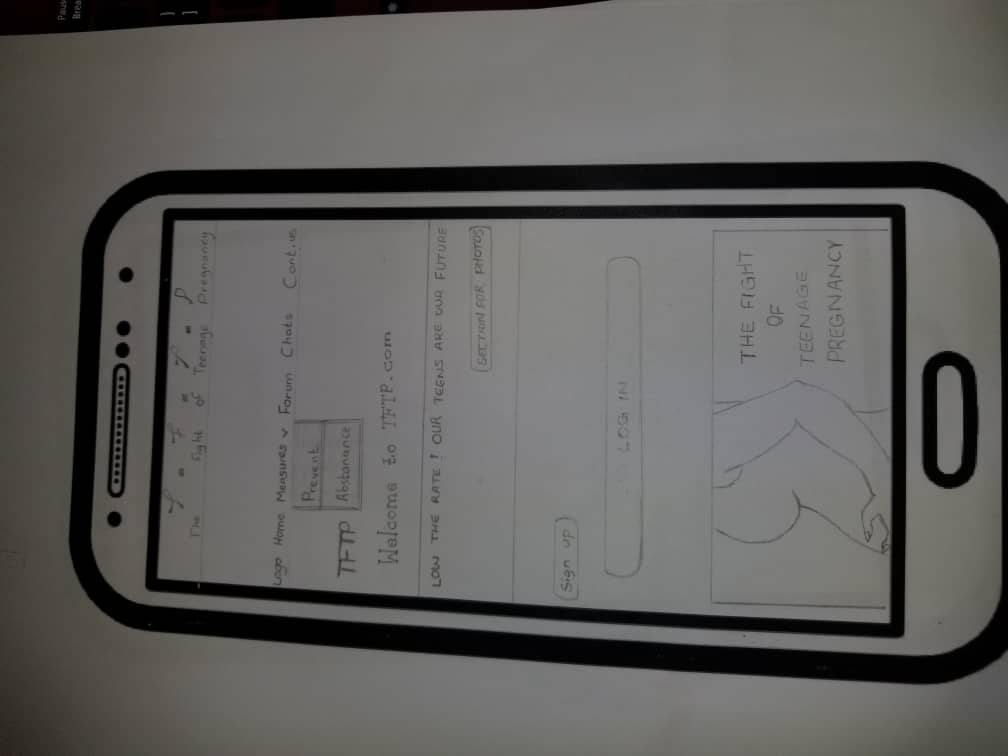 The fight of Teenage Pregnancy
Logo Home Measures v Forum Chats Cont.us
Prevent
Abstanance
TFTP
Welcome to TFTP.com
LOW THE RATE ! OUR TEENS ARE OUR FUTURE
SECTION FOR PHOTOS
Sign up
LOG IN
THE FIGHT
OF
TEENAGE
PREGNANCY